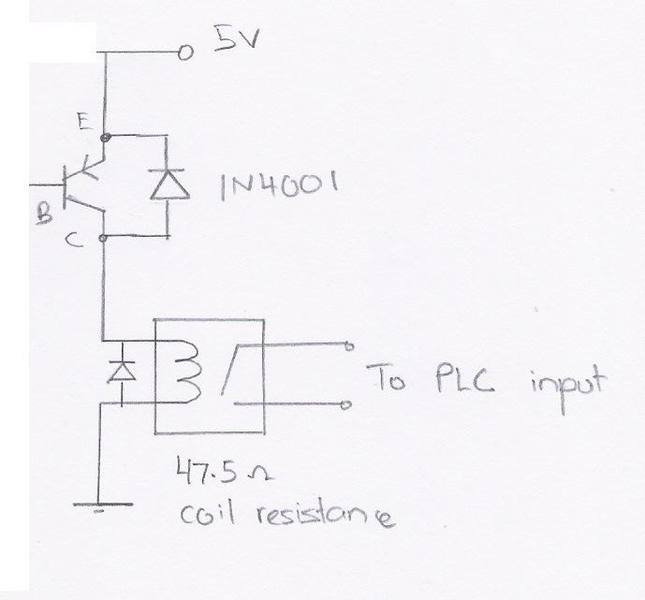 5V
E
1N4001
B
C
To PLC input
47.5 Ω
coil resistance